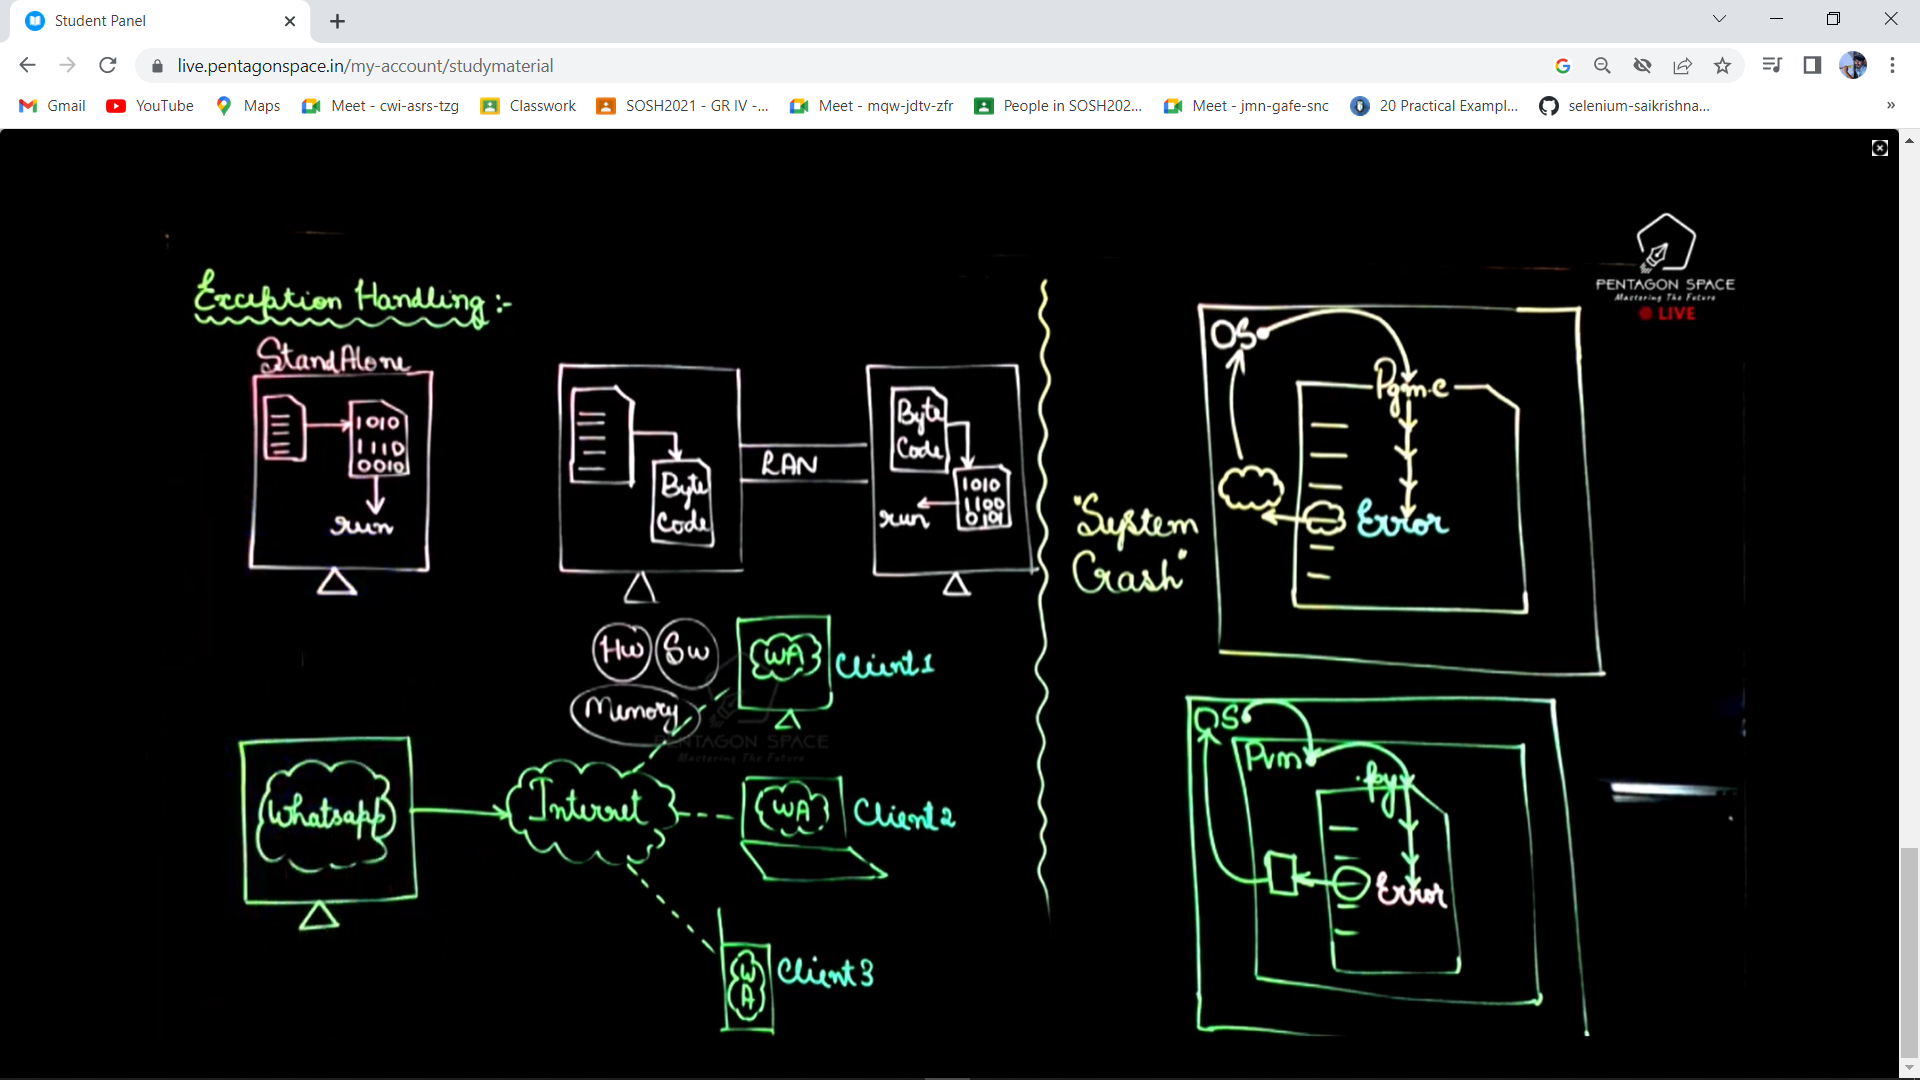 Student Panel
live.pentagonspace.in/my-account/studymaterial
Gmail
YouTube
Maps
Meet - cwi-asrs-tzg
Classwork
SOSH2021 - GR IV -...
Meet - mqw-jdtv-zfr
People in SOSH202...
Meet - jmn-gafe-snc
20 Practical Exampl...
selenium-saikrishna...
»
PENTAGON SPACE
Mastering The Future
LIVE
Exception Handling :-
StandAlone
1010
1110
0010
run
Byte
Code
RAN
Byte
Code
1010
1100
0101
run
Hw
Sw
Memory
WA
Client1
PENTAGON SPACE
Mastering The Future
Whatsapp
Internet
WA
Client2
W
A
Client3
"System
Crash"
OS
Pgm.c
Error
OS
Pvm
.py
Error